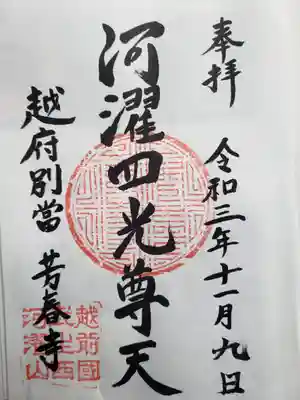 奉拝
令和三年十一月九日
河濯四光尊天
越府別當 芳春寺
越前國
河濯山